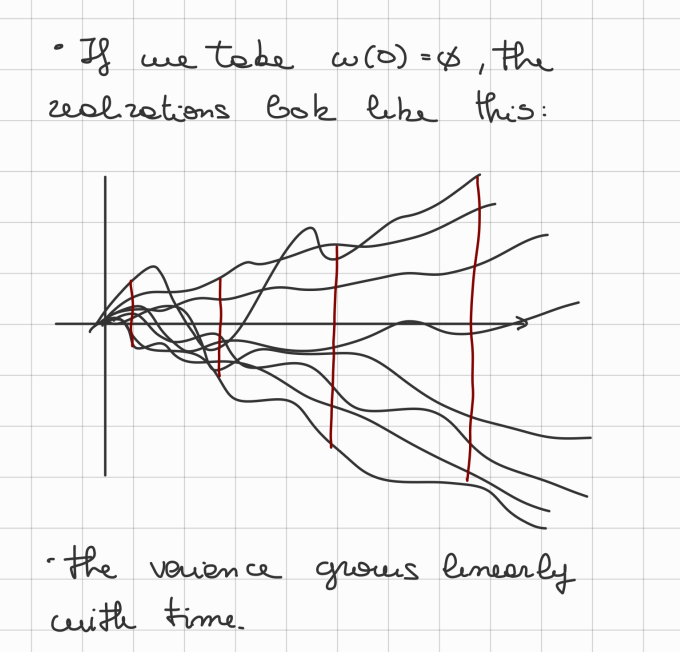 · If we take w(0) = ϕ, the
realizations look like this:
· the variance grows linearly
with time.